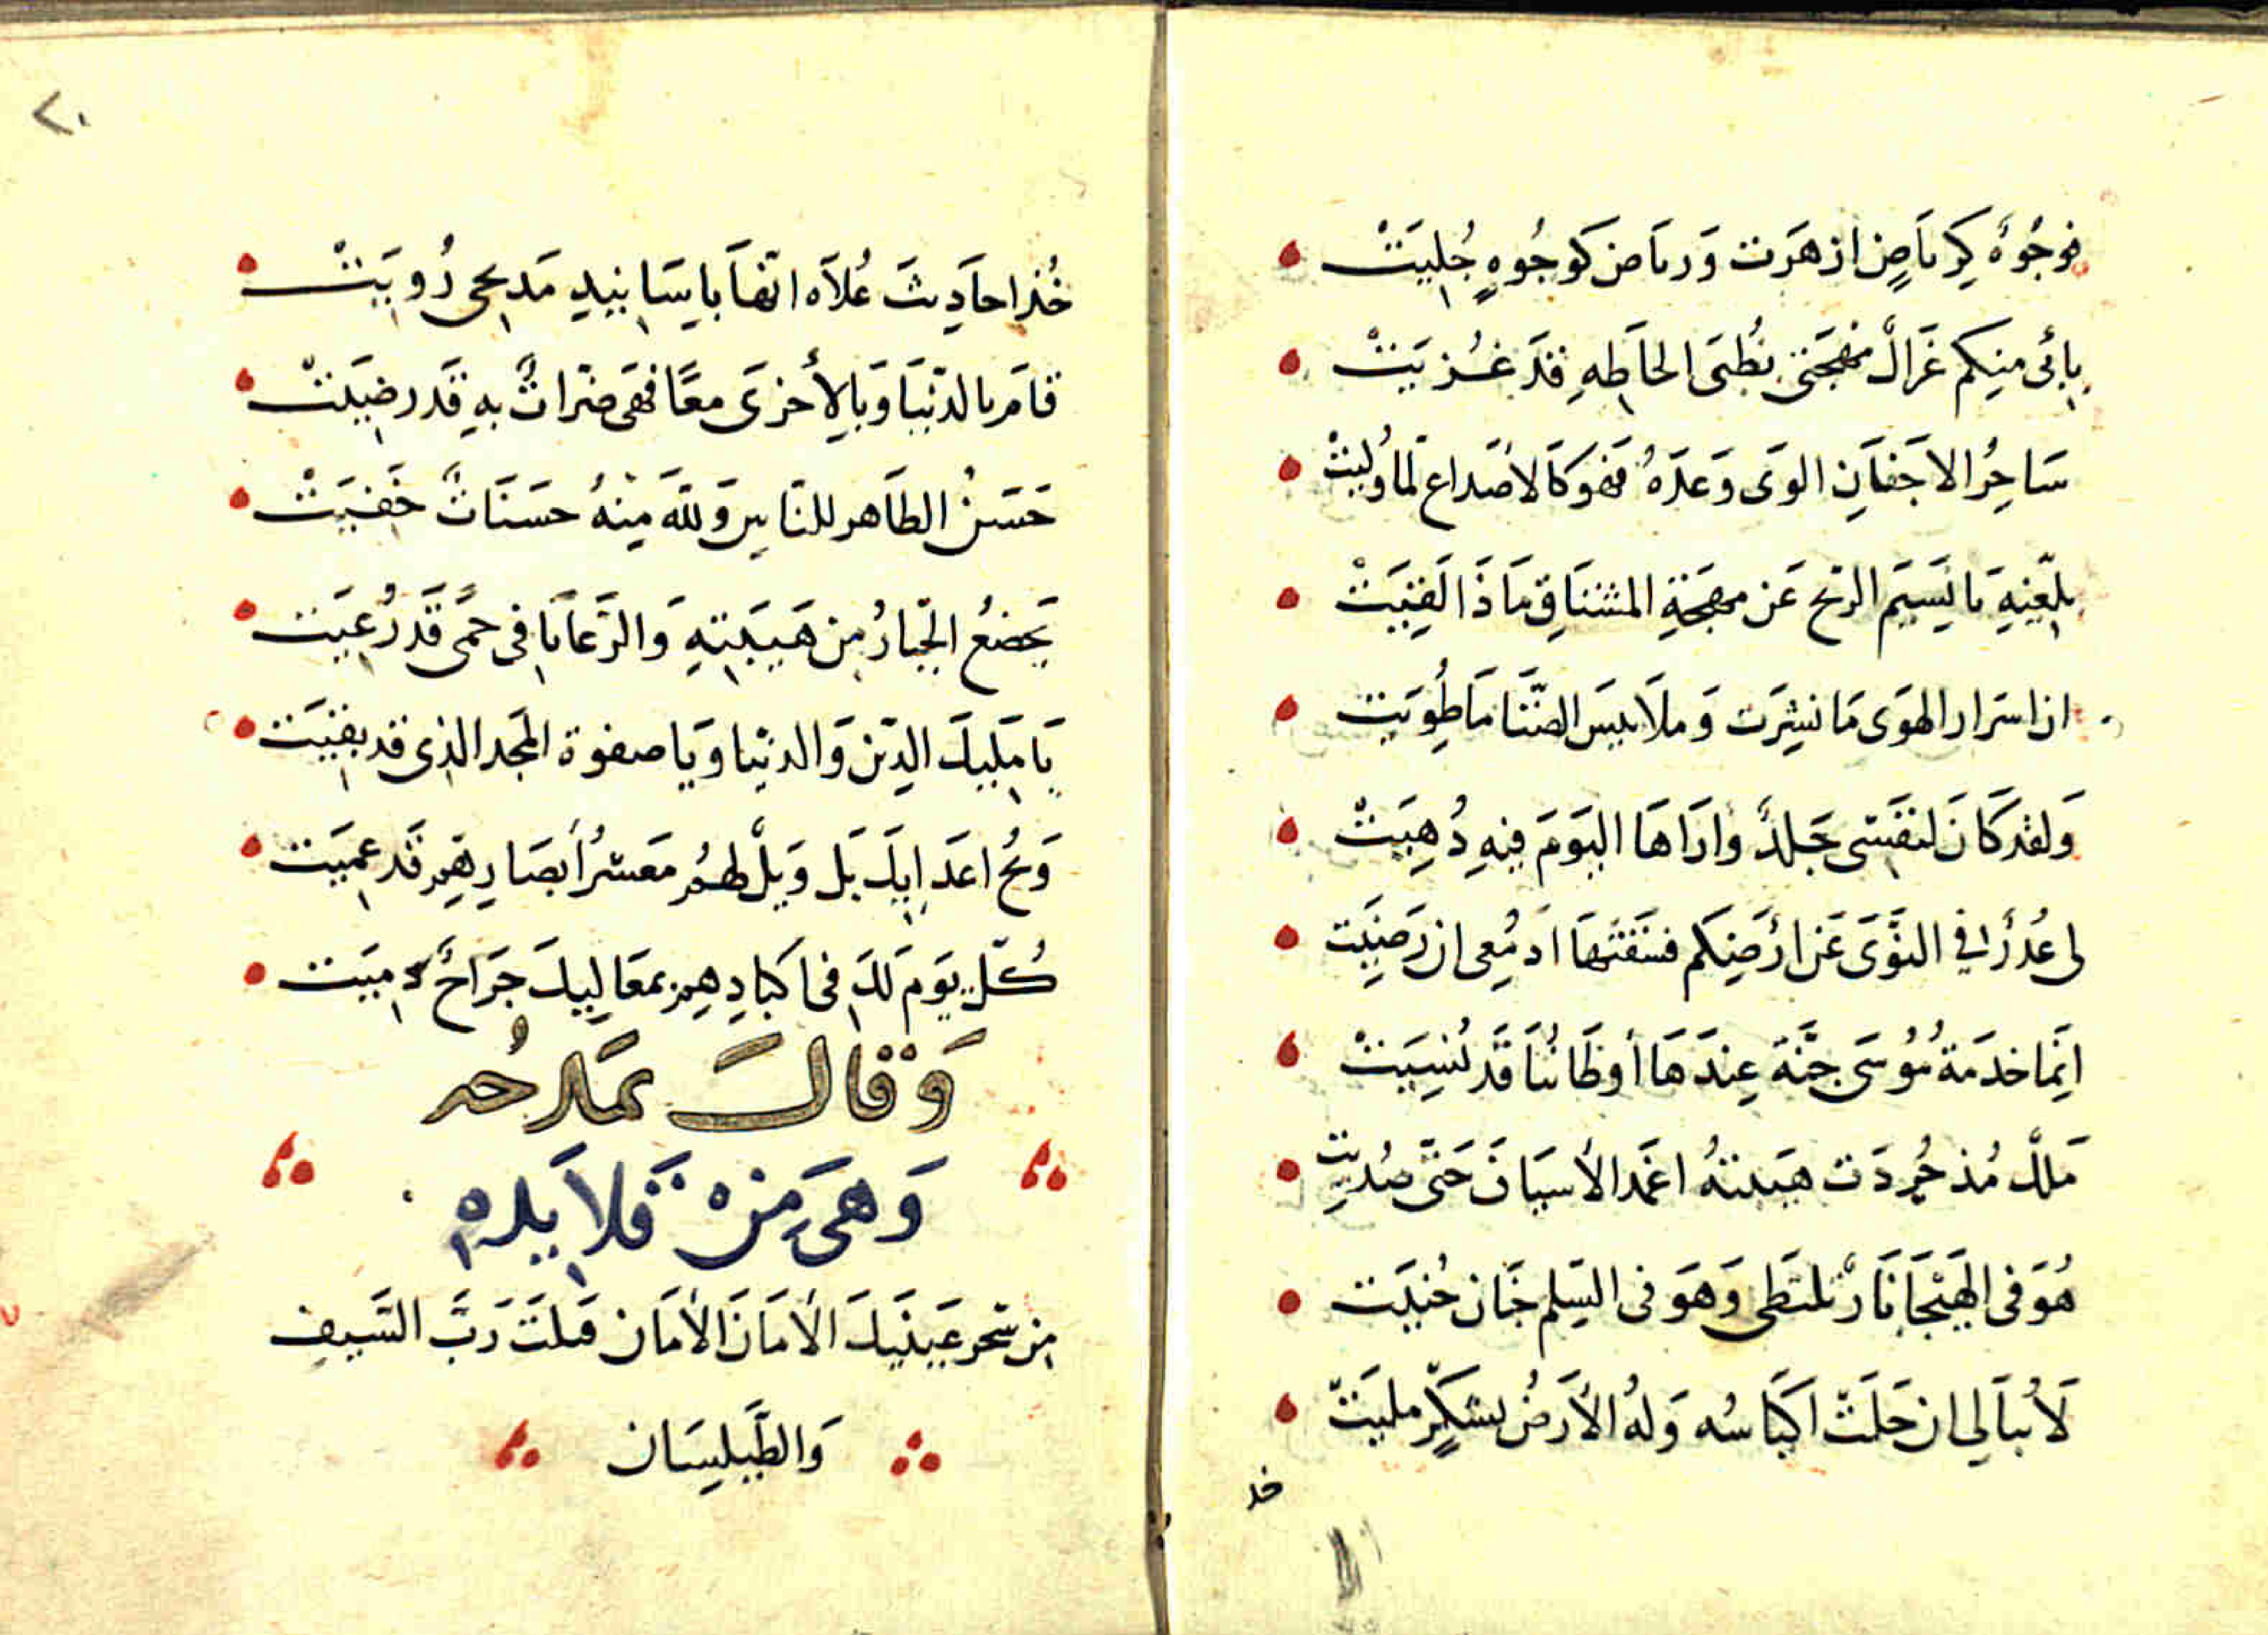 فوجُوهٌ كِرياضٍ ازهَرَت وَرياض كوجُوهٍ جُلِيَتْ
بِأبى منِكم غزالٌ مُهجَتى بظُبَى الحاظِهِ قَد غُزيَتْ
سَاحِرُ الاجفَانِ الوَى وَعدَهُ فهوَ كالأصدَاع لمّا وُلِيَتْ
بلِّغيهِ يا نَسِيمَ الريّح عَن مهجَةِ المشتَاقِ مَا ذَا لَقِيَتْ
ان اسرَار الهوَى مَا نشِرَت وَملاَبسَ الضَنَا مَا طُوِيَت
وَلقد كانَ لنفسى جَلدٌ وارَاهَا اليَومَ فيهِ دُهِيَتْ
لى عُذرٌ في النَوَى عَن ارْضِكم فسَقتْهَا ادمُعِى ان رَضِيَت
انِمّا خدمَة مُوُسَى جنَّة عِندَهَا أوطَانُنَا قَد نُسِيَتْ
مَلكٌ مُذ جُرِدَت هيَبتهُ اغمَد الأسيَافَ حَتّى صُدِيَت
هُوَ فى الهَيْجَا نَارٌ تلتَظى وَهوَ فى السّلم جنَان جُنيَت
لاَ يُبالِي ان خَلَتْ اكيَاسُه وَلهُ الأرَضُ بشكرٍ مليَتْ
خذ
٢٠
خُذ احَادِيثَ عُلاَه انّها بِاسَانِيدِ مَدِيحى رُويَتْ
قامَ بالدّنيَا وَبالأخرَى معًا فهىَ ضرّاتٌ بهِ قَد رضيَتْ
حَسَنُ الظَاهر للنّاسِ وَلله مِنهُ حسَنَاتٌ خَفيَتْ
يَخضعُ الجّبارُ مِن هَيبَتهِ وَالرَّعايَا فى حمًى قَد رُعيَت
يَا مَليكَ الدّين وَالدنيْا وَيا صفوة المجَد الذى قد بقيَت
وَيحُ اعدَايِكَ بَل وَيلٌ لهُم معَشرٌ أبصَارهِم قَد عمِيَت
كُلّ يوَم لكَ فى اكبادِهِم بمعَاليِكَ جرَاحٌ دميَت
وَقَالَ يمَدحُه
وَهىَ مِن قَلايدهِ
مِن سحرِ عَينَيكَ الأمَانَ الأمَان قتَلتَ رَبَّ السَّيفِ
وَالطَّيلِسَان